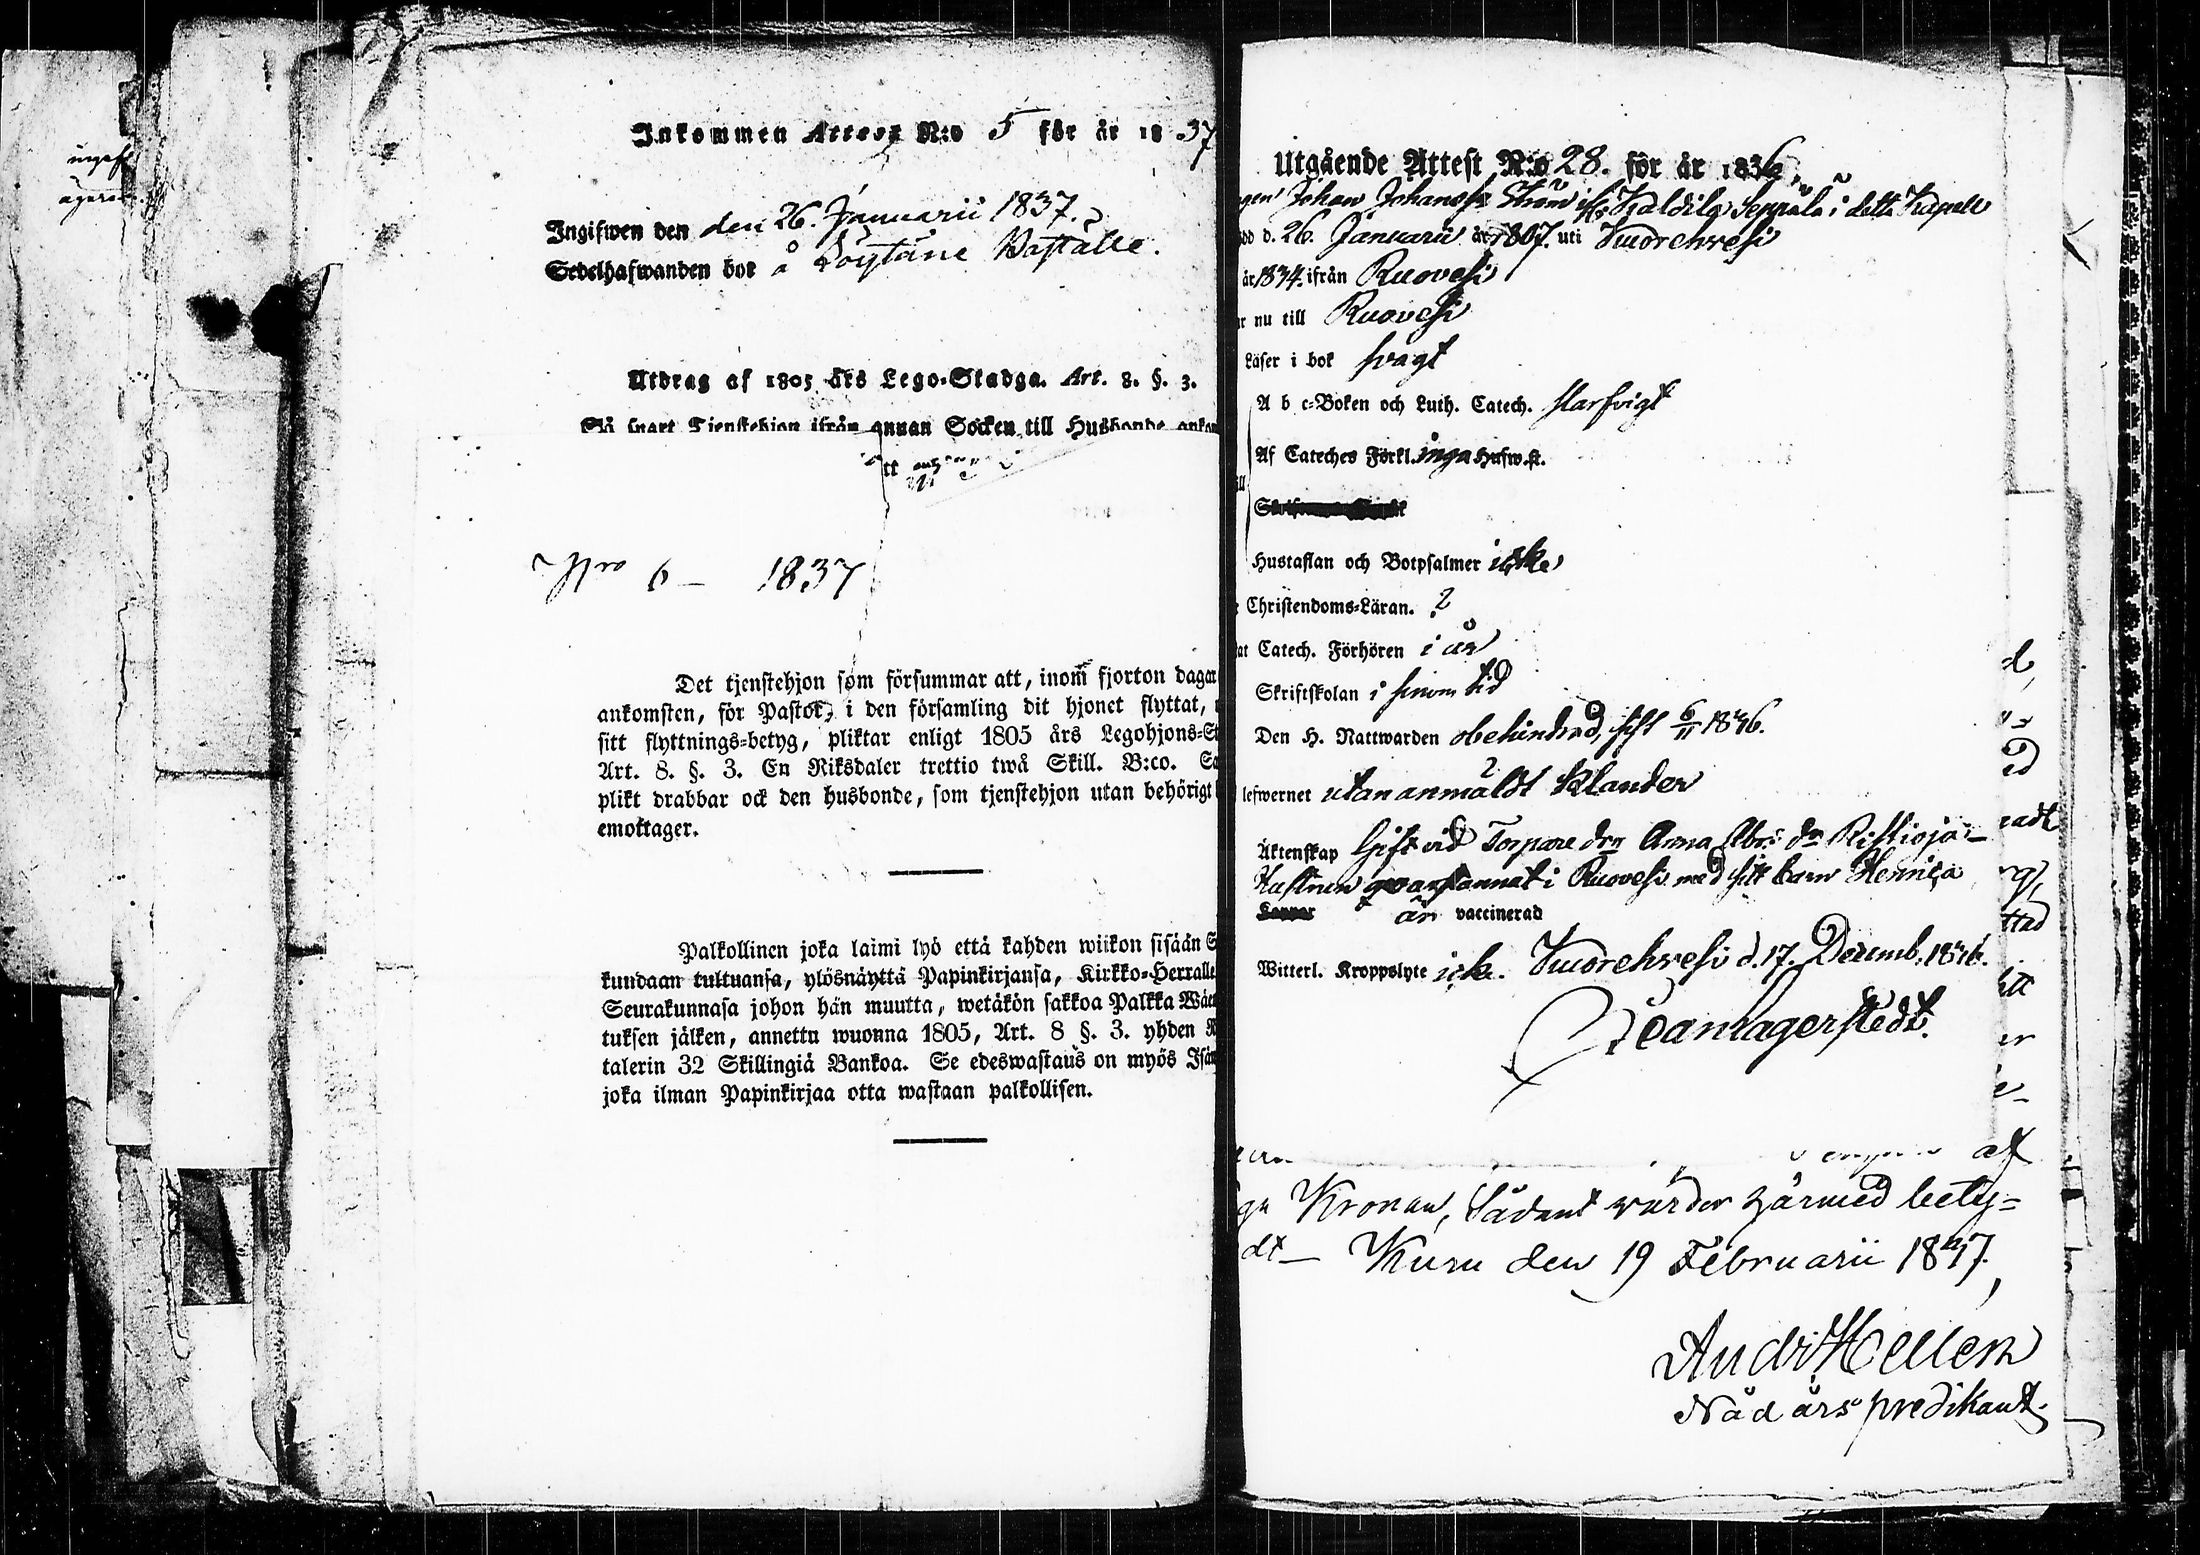 ingaf
Inkommen Attest N:o 5 för år 1837
Ingifwen den den 26. Januarii 1837.
Sedelhafwanden bor å Boställe.
Utdrag af 1805 års Lego-Stadga. Art. 8. §. 3.
Så snart Tjenstehjon ifrån annan Socken till Husbonde ankom
Nro 6 – 1837
Det tjenstehjon som försummar att, inom fjorton dagar
ankomsten, för Pastor, i den församling dit hjonet flyttat,
sitt flyttnings-betyg, pliktar enligt 1805 års Legohjons-St
Art. 8. §. 3. En Riksdaler trettio twå Skill. B:co. Sa
plikt drabbar ock den husbonde, som tjenstehjon utan behörigt
emottager.
Palkollinen joka laimi lyö että kahden wiikon sisään S
kundaan tultuansa, ylösnäyttä Papinkirjansa, Kirkko-Herralle
Seurakunnasa johon hän muutta, wetäkön sakkoa Palkka Wää
tuksen jälken, annettu wuonna 1805, Art. 8 §. 3. yhden R
talerin 32 Skillingiä Bankoa. Se edeswastaus on myös Isän
joka ilman Papinkirjaa otta wastaan palkollisen.
Utgående Attest N:o 28. för år 1836.
gen Johan Johanss. Ström ifr. Seppälä i detta Kapell
dd d. 26. Januarii år 1807. uti Vuorehvesi
år 1834. ifrån Ruovesi
r nu till Ruovesi
Läser i bok svagt
A b c-Boken och Luth. Catech. slarfvigt
Af Cateches Förkl. inga Hufw.st.
Hustaflan och Botpsalmer icke
Christendoms-Läran. ?
at Catech. Förhören i år
Skriftskolan i sinom tid
Den H. Nattwarden obehindrad, sist 6/11 1836.
lefwernet utan anmäldt klander
Äktenskap Gift vid Torpare dr Anna Abr: dr Ristioja –
Hustrun qvarstannat i Ruovesi med sitt barn Hernica
Koppor är vaccinerad
Witterl. Kroppslyte icke. Vuorehvesi d. 17. Decemb. 1836.
Jean Lagerstedt.
d,
ed
radt
rg,
ttad
er
af
ga Kronan, Sådant varder härmed bety-
dt – Kuru den 19 Februarii 1837.
And: Hellen
Nådårs predikant.